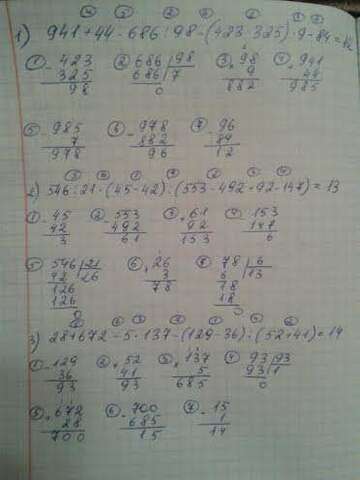 ④ ⑤ ② ⑥ ① ③ ⑦
1) 941+44-686:98-(423-325)·9-84=12
① -423 ② 686|98 ③ ×98 ④ +941
325 686|7 9 44
98 0 882 985
⑤ -985 ⑥ -978 ⑦ -96
7 882 84
978 96 12
2) 546:21·(45-42):(553-492+92-147)=13
① -45 ② -553 ③ +61 ④ -153
42 492 92 147
3 61 153 6
⑤ 546|21 ⑥ ×26 ⑦ 78|6
42|26 3 6|13
126 78 18
126 18
0 0
3) 28+672-5·137-(129-36):(52+41)=14
① -129 ② +52 ③ ×137 ④ 93|93
36 41 5 93|1
93 93 685 0
⑤ +672 ⑥ -700 ⑦ -15
28 685 1
700 15 14